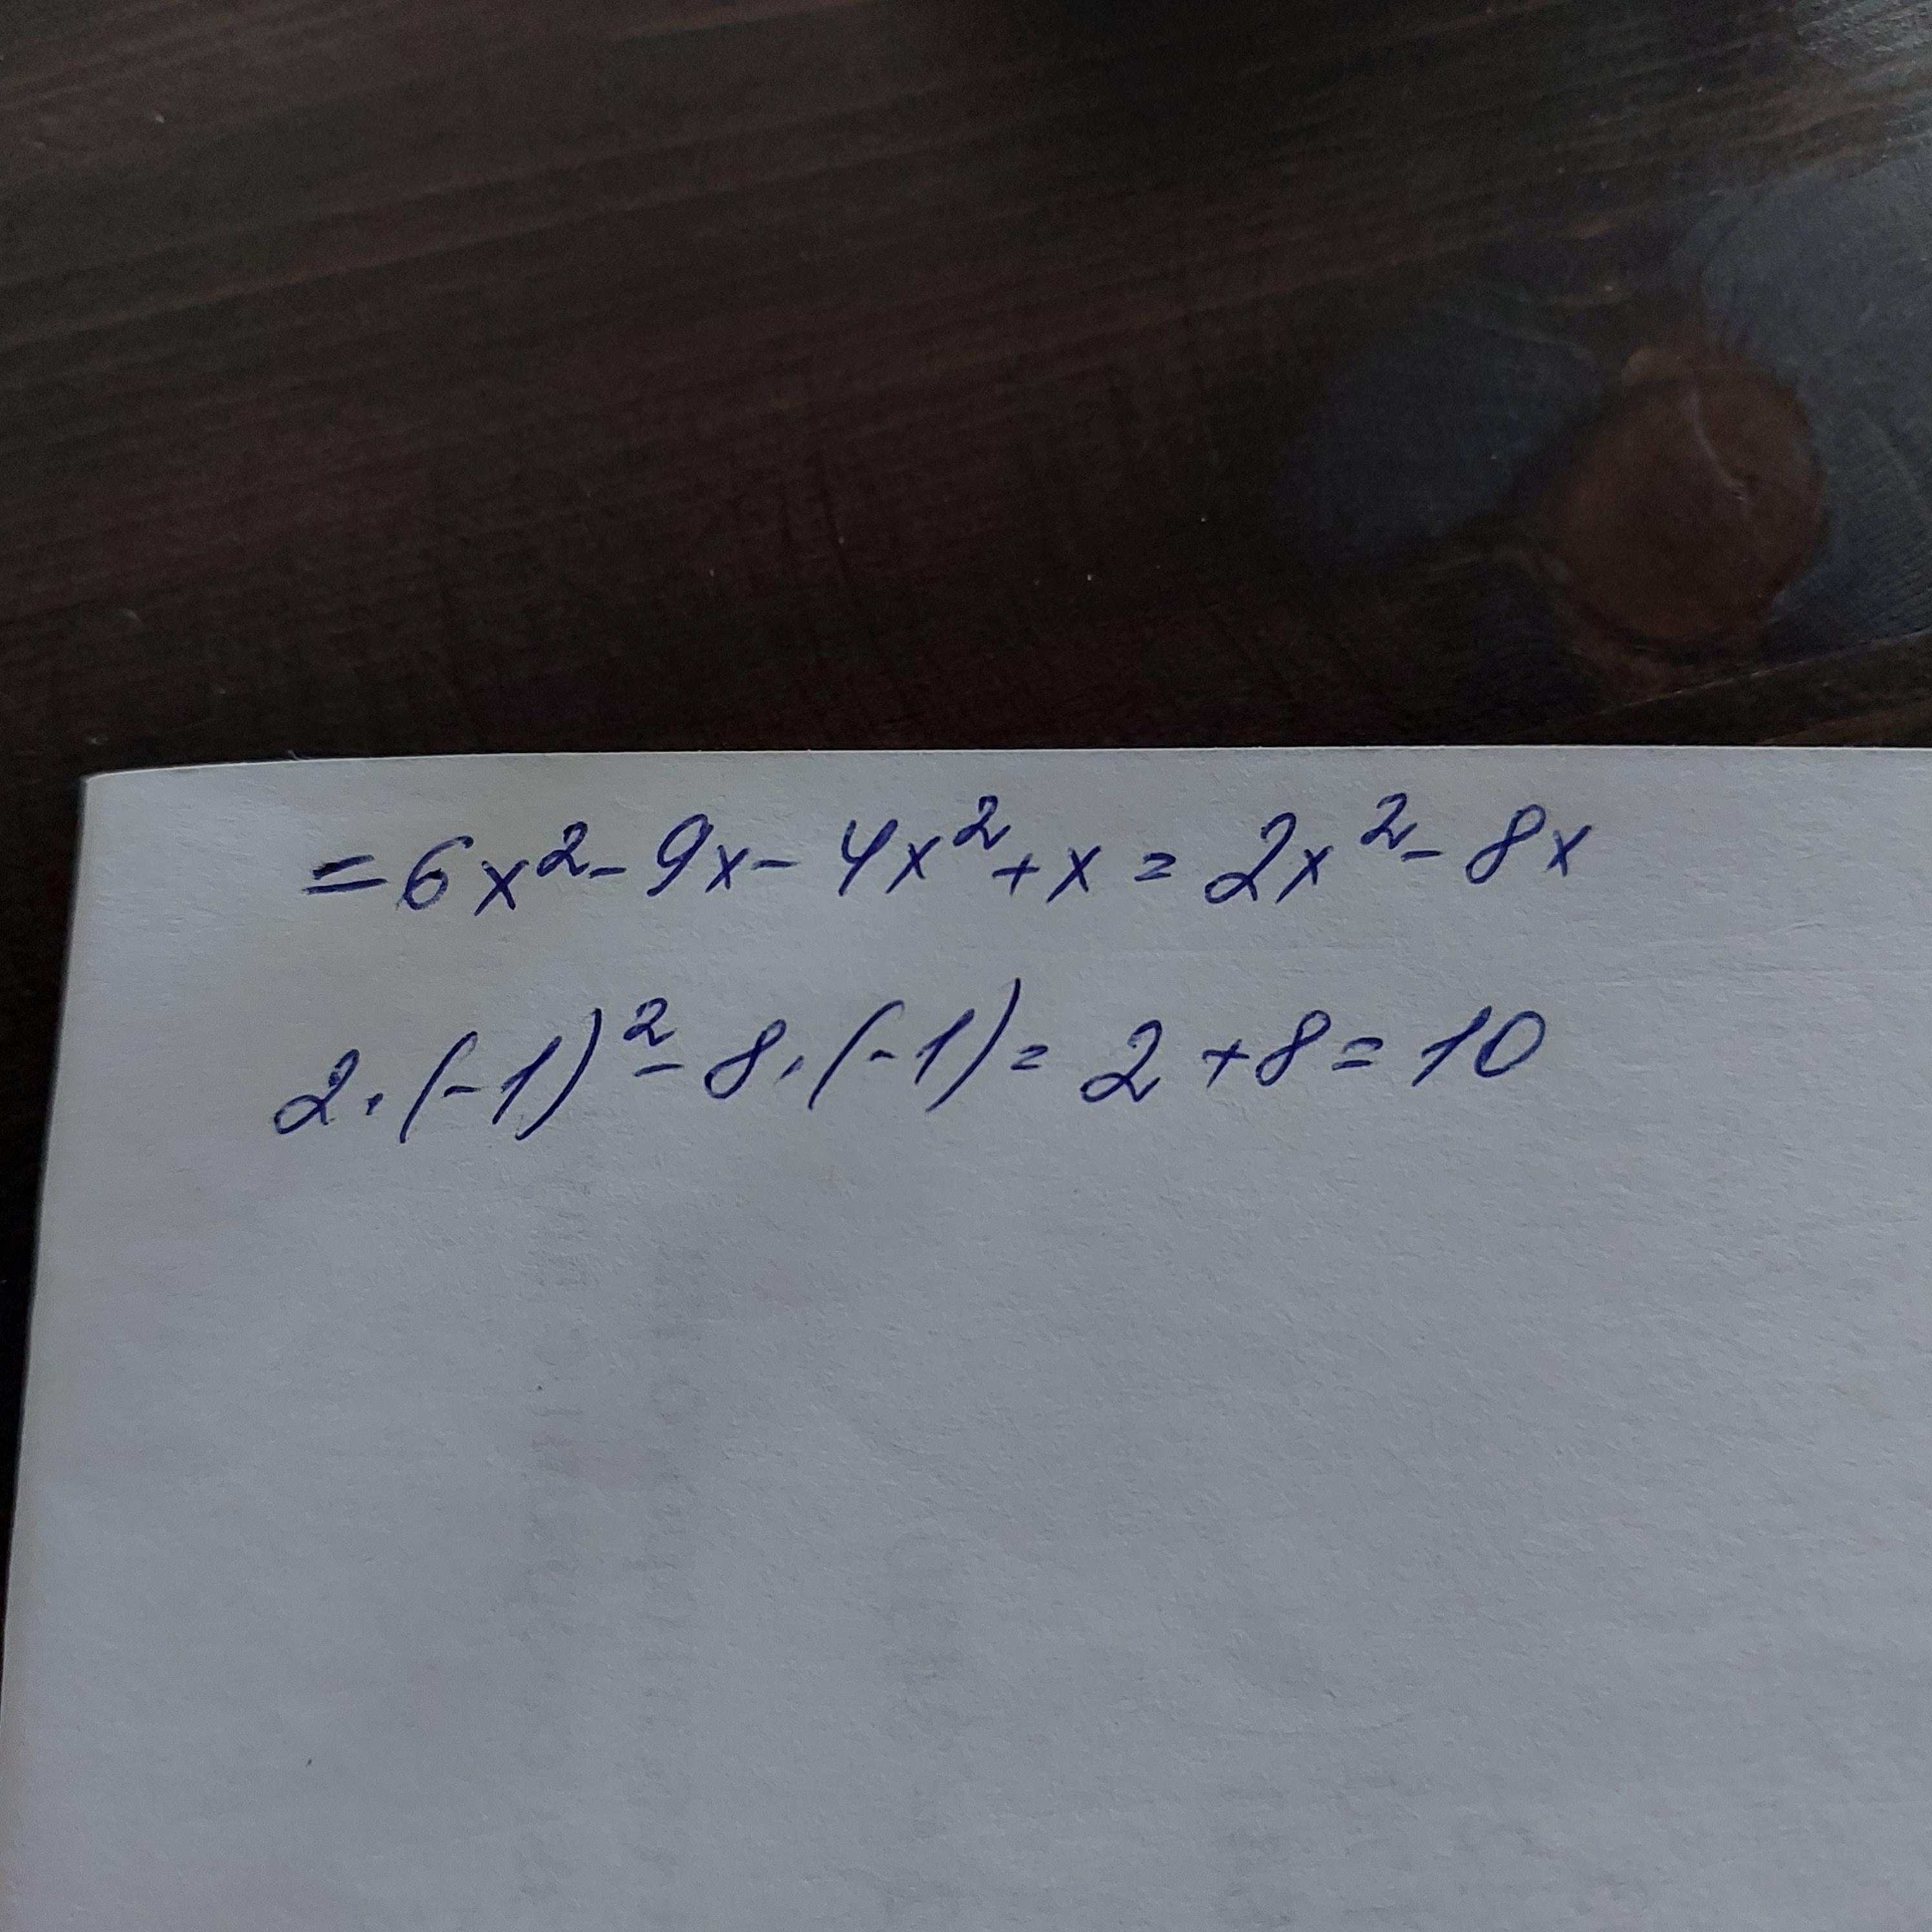 = 6x² - 9x - 4x² + x = 2x² - 8x
2 · (-1)² - 8 · (-1) = 2 + 8 = 10